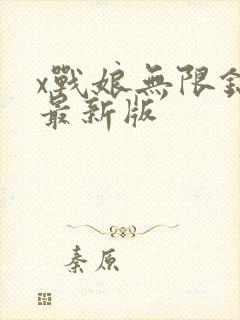 x戰娘無限
最新版
秦原